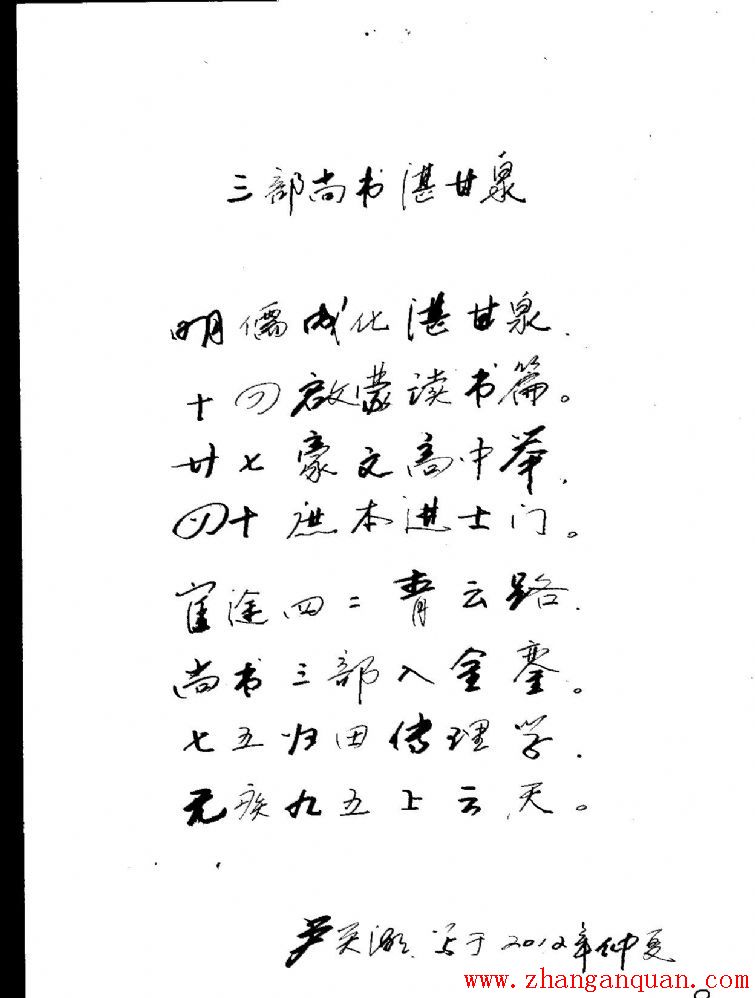 三部尚书湛甘泉
明儒成化湛甘泉,
十四启蒙读书篇。
廿七豪文高中举,
四十进士门。
宦途四二青云路,
尚书三部入金銮。
七五归田传理学,
无疾九五上云天。
写于2012年仲夏
www.zhanganquan.com